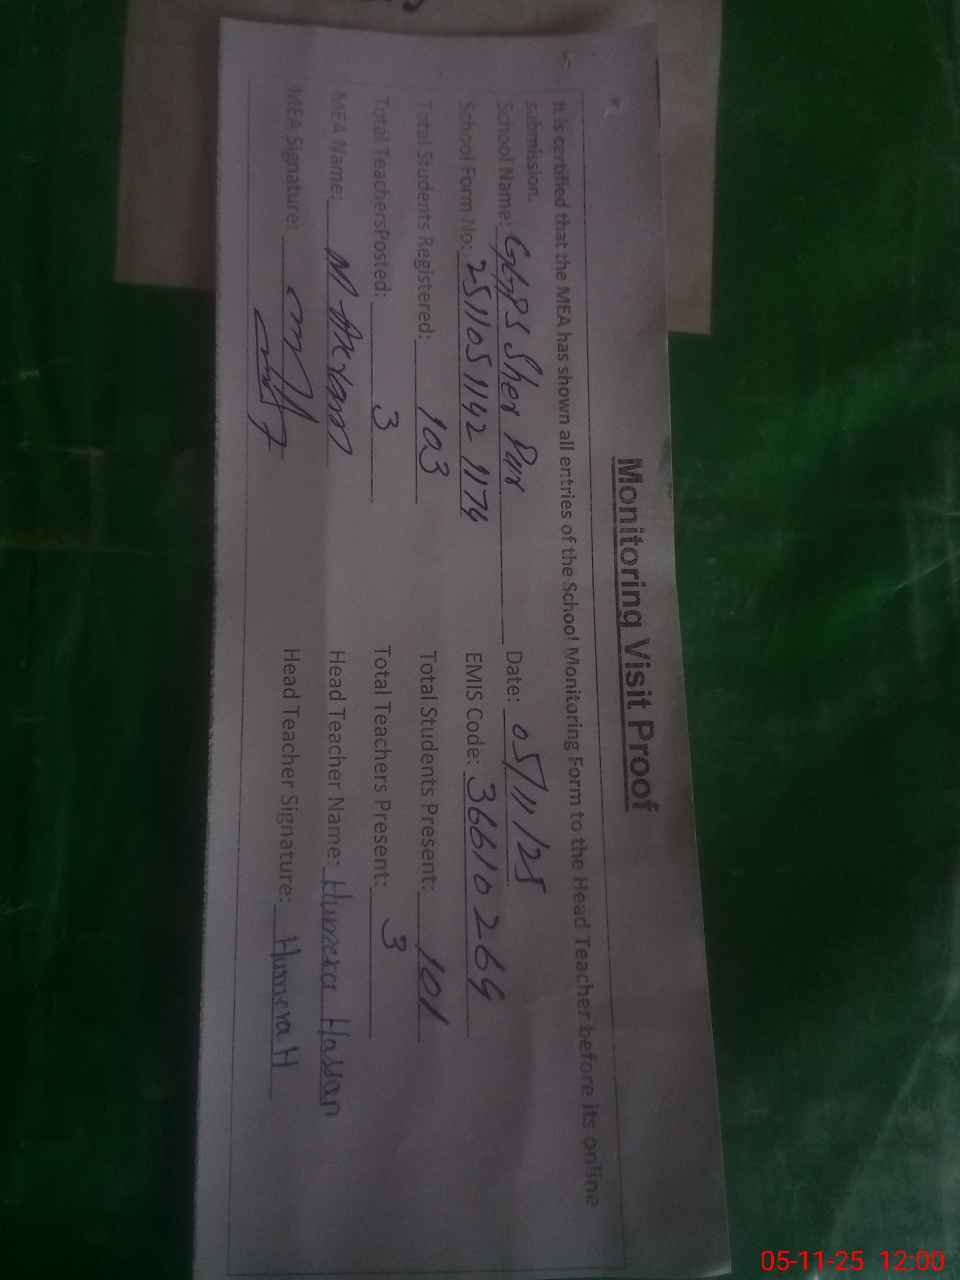 Monitoring Visit Proof
It is certified that the MEA has shown all entries of the School Monitoring Form to the Head Teacher before its online
submission.
School Name: GGPS Sher Pur Date: 05/11/25
School Form No: 2511051142 1174 EMIS Code: 36610269
Total Students Registered: 103 Total Students Present: 101
Total TeachersPosted: 3 Total Teachers Present: 3
MEA Name: M Akram Head Teacher Name: Humera Hassan
MEA Signature: Head Teacher Signature: Humera H
05-11-25 12:00